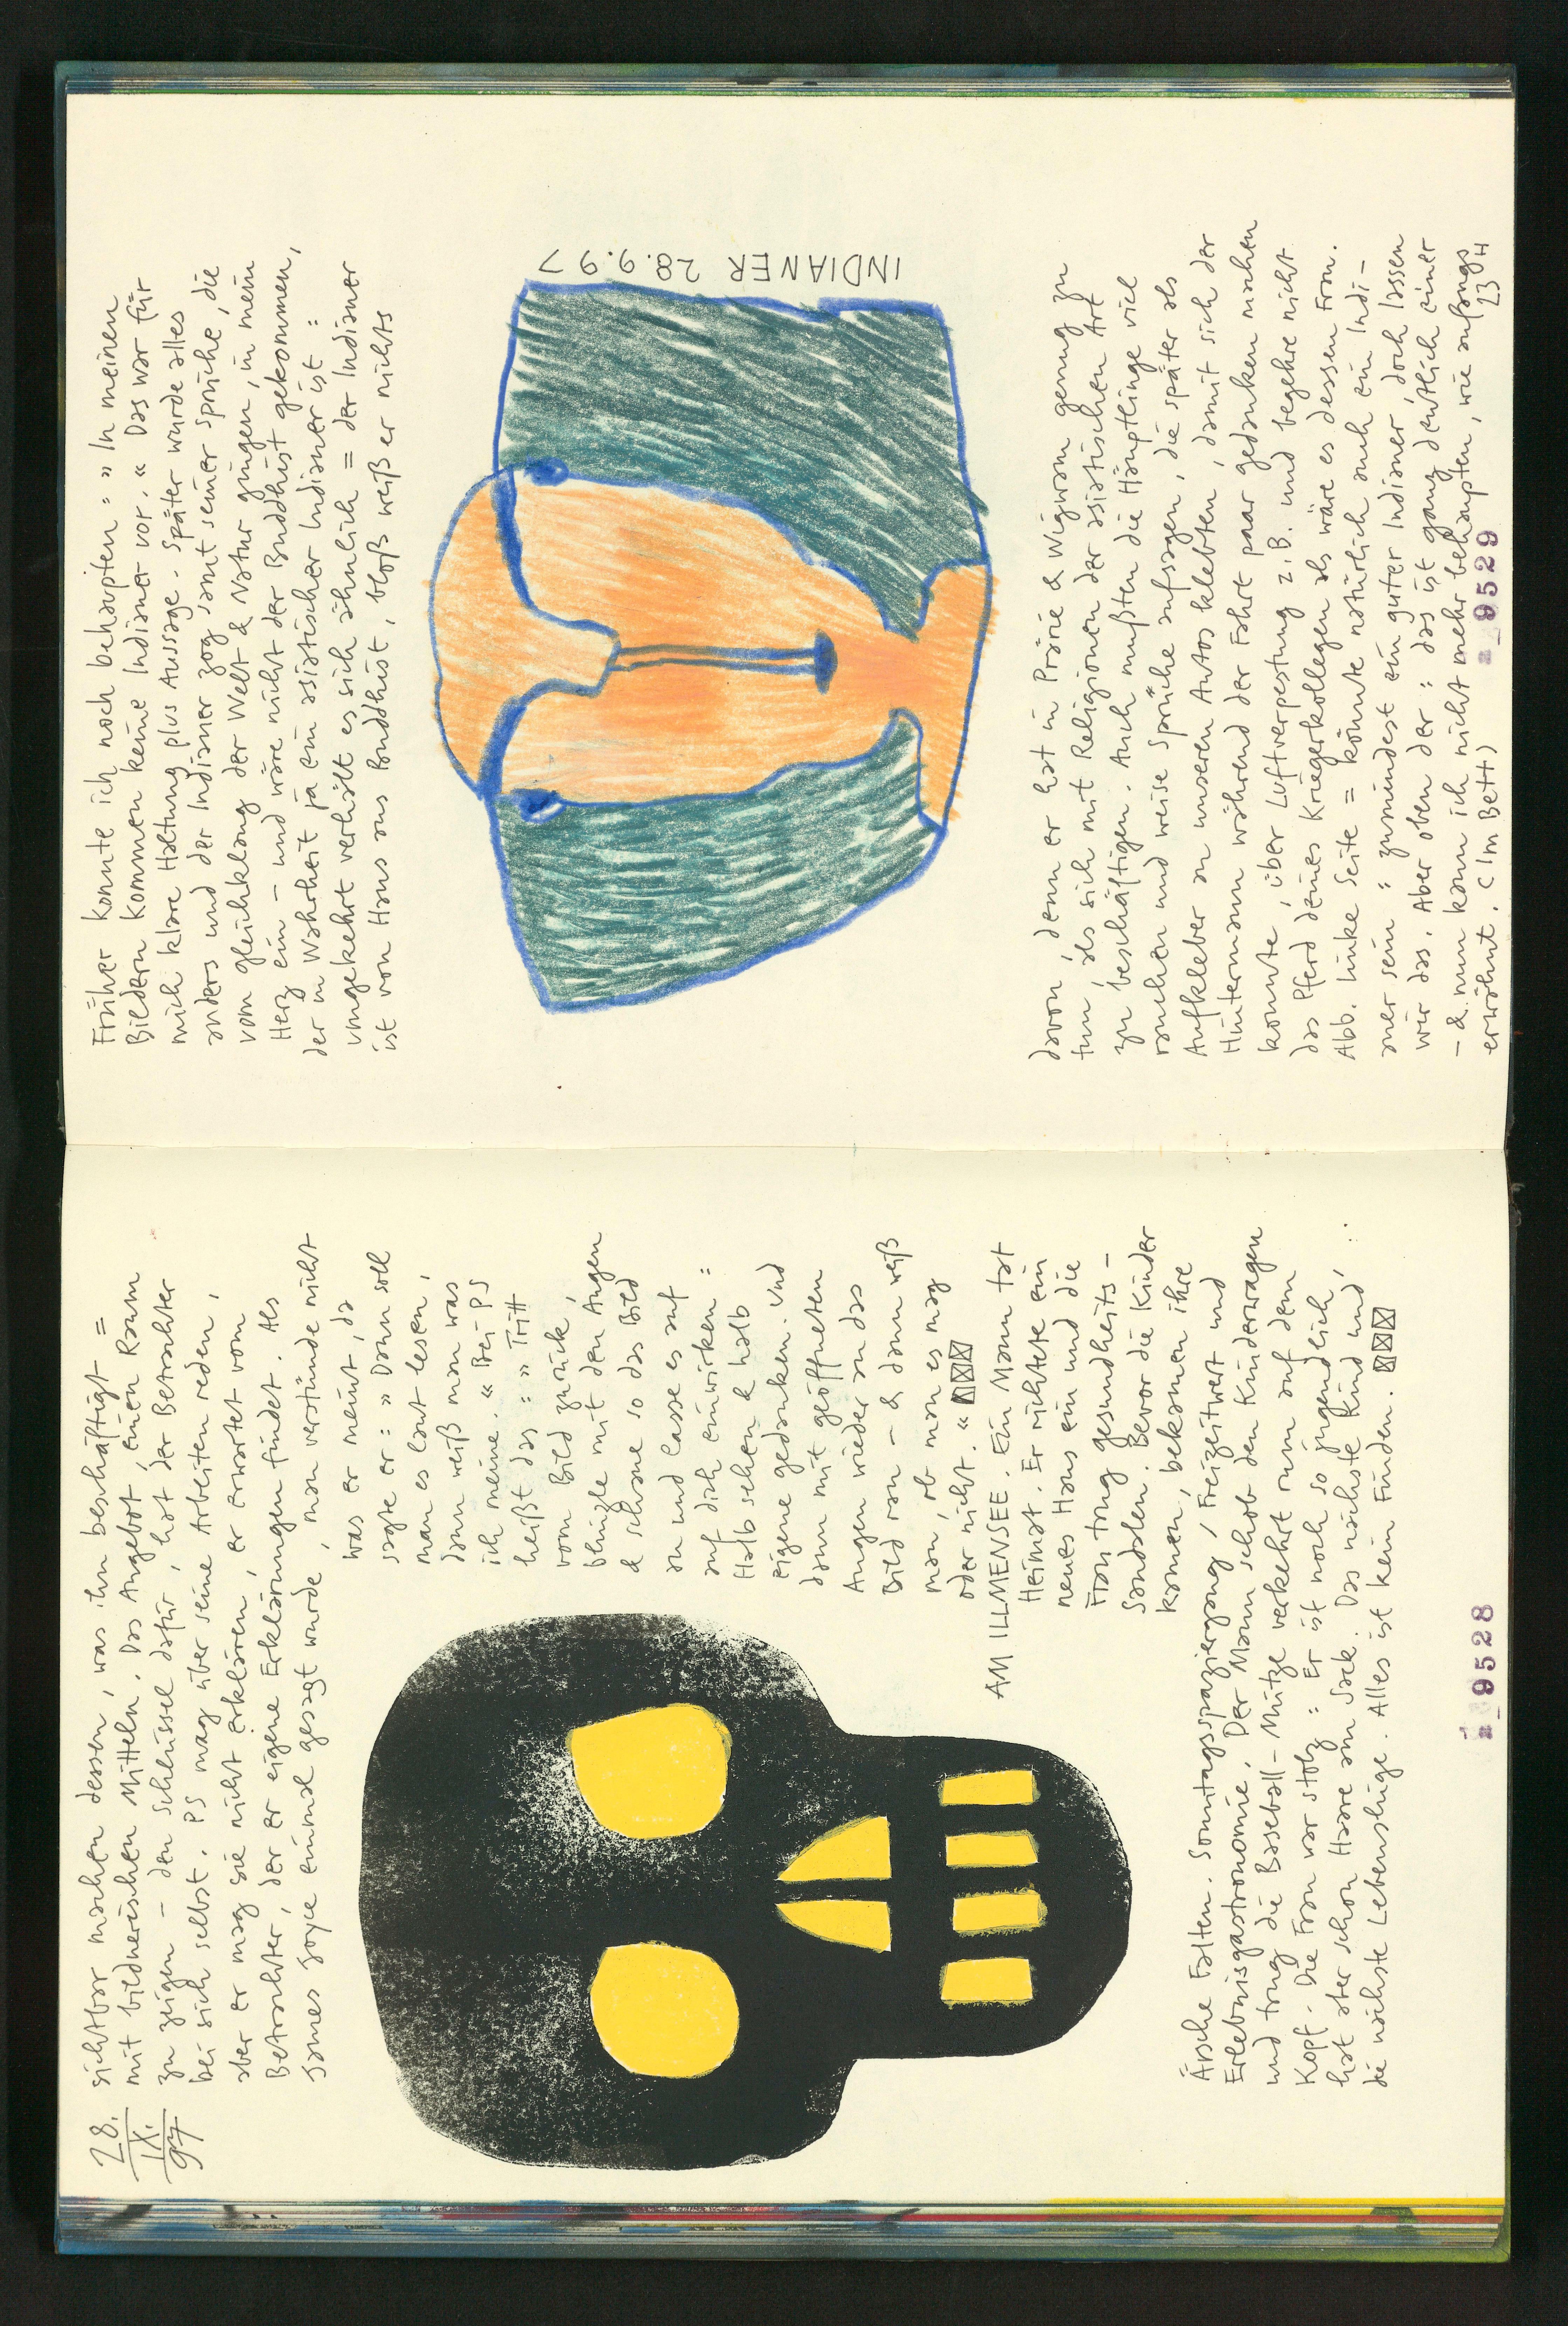 28.
IX.
97
sichtbar machen dessen, was ihn beschäftigt =
mit bildnerischen Mitteln. Das Angebot, einen Raum
zu zeigen – den Schlüssel dafür, hat der Betrachter
bei sich selbst. PS mag über seine Arbeiten reden,
aber er mag sie nicht erklären, er erwartet vom
Betrachter, der er eigene Erklärungen findet. Als
James Joyce einmal gesagt wurde, man verstünde nicht
was er meint, da
sagte er: » Dann soll
man es laut lesen,
dann weiß man was
ich meine. « Bei PS
heißt das: » Tritt
vom Bild zurück,
blinzle mit den Augen
& schaue so das Bild
an und lasse es auf
auf dich einwirken:
Halb sehen & halb
eigene Gedanken. Und
dann mit geöffneten
Augen wieder an das
Bild ran – & dann weiß
man, ob man es mag
oder nicht. «
AM ILLMENSEE. Ein Mann tat
Heimat. Er richtete ein
neues Haus ein und die
Frau trug Gesundheits-
sandalen. Bevor die Kinder
kamen, bekamen ihre
Ärsche Falten. Sonntagsspaziergang, Freizeitwert und
Erlebnisgastronomie. Der Mann schob den Kinderwagen
und trug die Baseball-Mütze verkehrt rum auf dem
Kopf. Die Frau war stolz: Er ist noch so jugendlich,
hat aber schon Haare am Sack. Das nächste Kind und,
die nächste Lebenslüge. Alles ist kein Finden.
9528
Früher konnte ich noch behaupten: » In meinen
Bildern kommen keine Indianer vor. « Das war für
mich klare Haltung plus Aussage. Später wurde alles
anders und der Indianer zog samt seiner Sprüche, die
vom Gleichklang der Welt & Natur gingen, in mein
Herz ein – und wäre nicht der Buddhist gekommen,
der in Wahrheit ja ein asiatischer Indianer ist:
umgekehrt verhält es sich ähnlich = der Indianer
ist von Haus aus Buddhist, bloß weiß er nichts
INDIANER 28.9.97
davon, denn er hat in Prärie & Wigwam genug zu
tun, als sich mit Religionen der asiatischen Art
zu beschäftigen. Auch mußten die Häuptlinge viel
rauchen und weise Sprüche aufsagen, die später als
Aufkleber an unseren Autos klebten, damit sich der
Hintermann während der Fahrt paar Gedanken machen
konnte, über Luftverpestung z.B. und begehre nicht
das Pferd deines Kriegerkollegen als wäre es dessen Frau.
Abb. linke Seite = könnte natürlich auch ein Indi-
aner sein: zumindest ein guter Indianer, doch lassen
wir das. Aber oben der: das ist ganz deutlich einer
– & nun kann ich nicht mehr behaupten, wie anfangs
erwähnt. (Im Bett) 23 H
9529